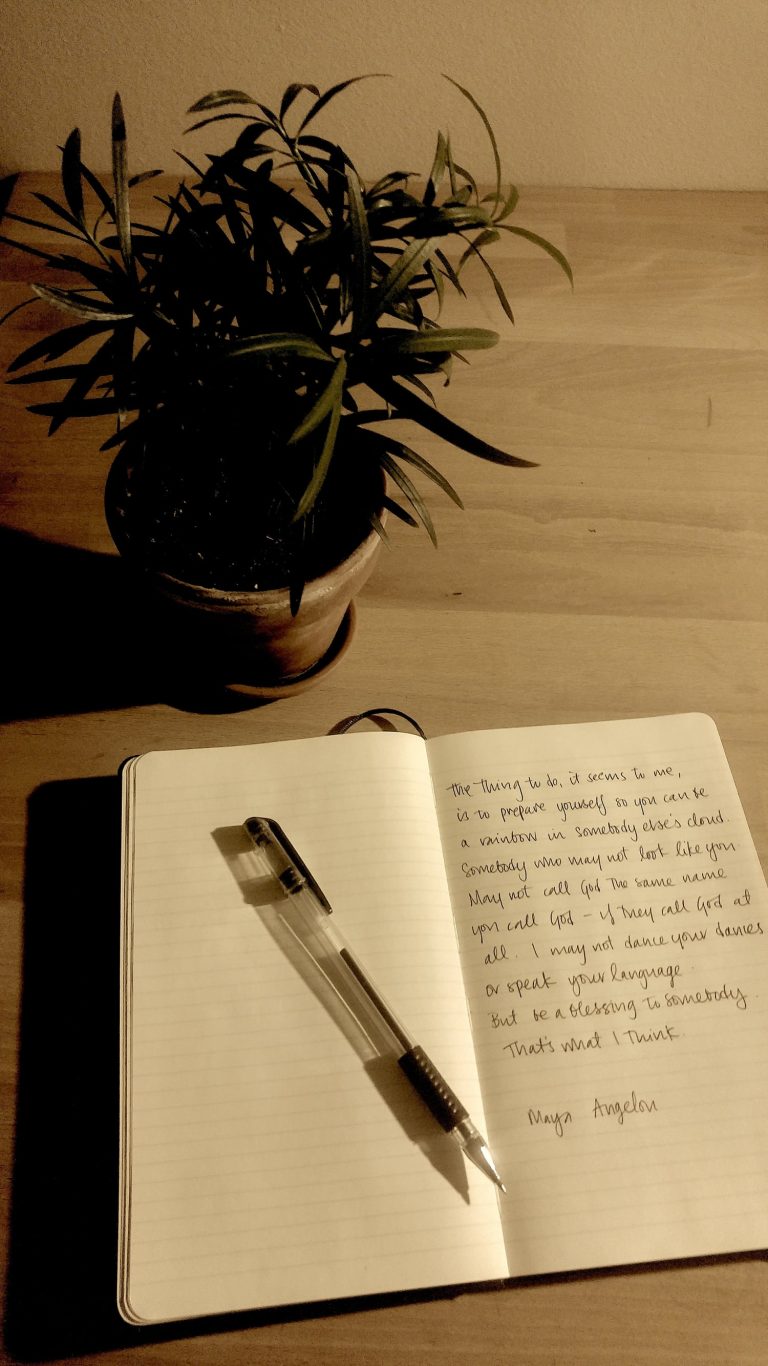 The thing to do, it seems to me,
is to prepare yourself so you can be
a rainbow in somebody else's cloud.
Somebody who may not look like you.
May not call God the same name
you call God - if they call God at
all. I may not dance your dances
or speak your language.
But be a blessing to somebody.
That's what I think.
Maya Angelou